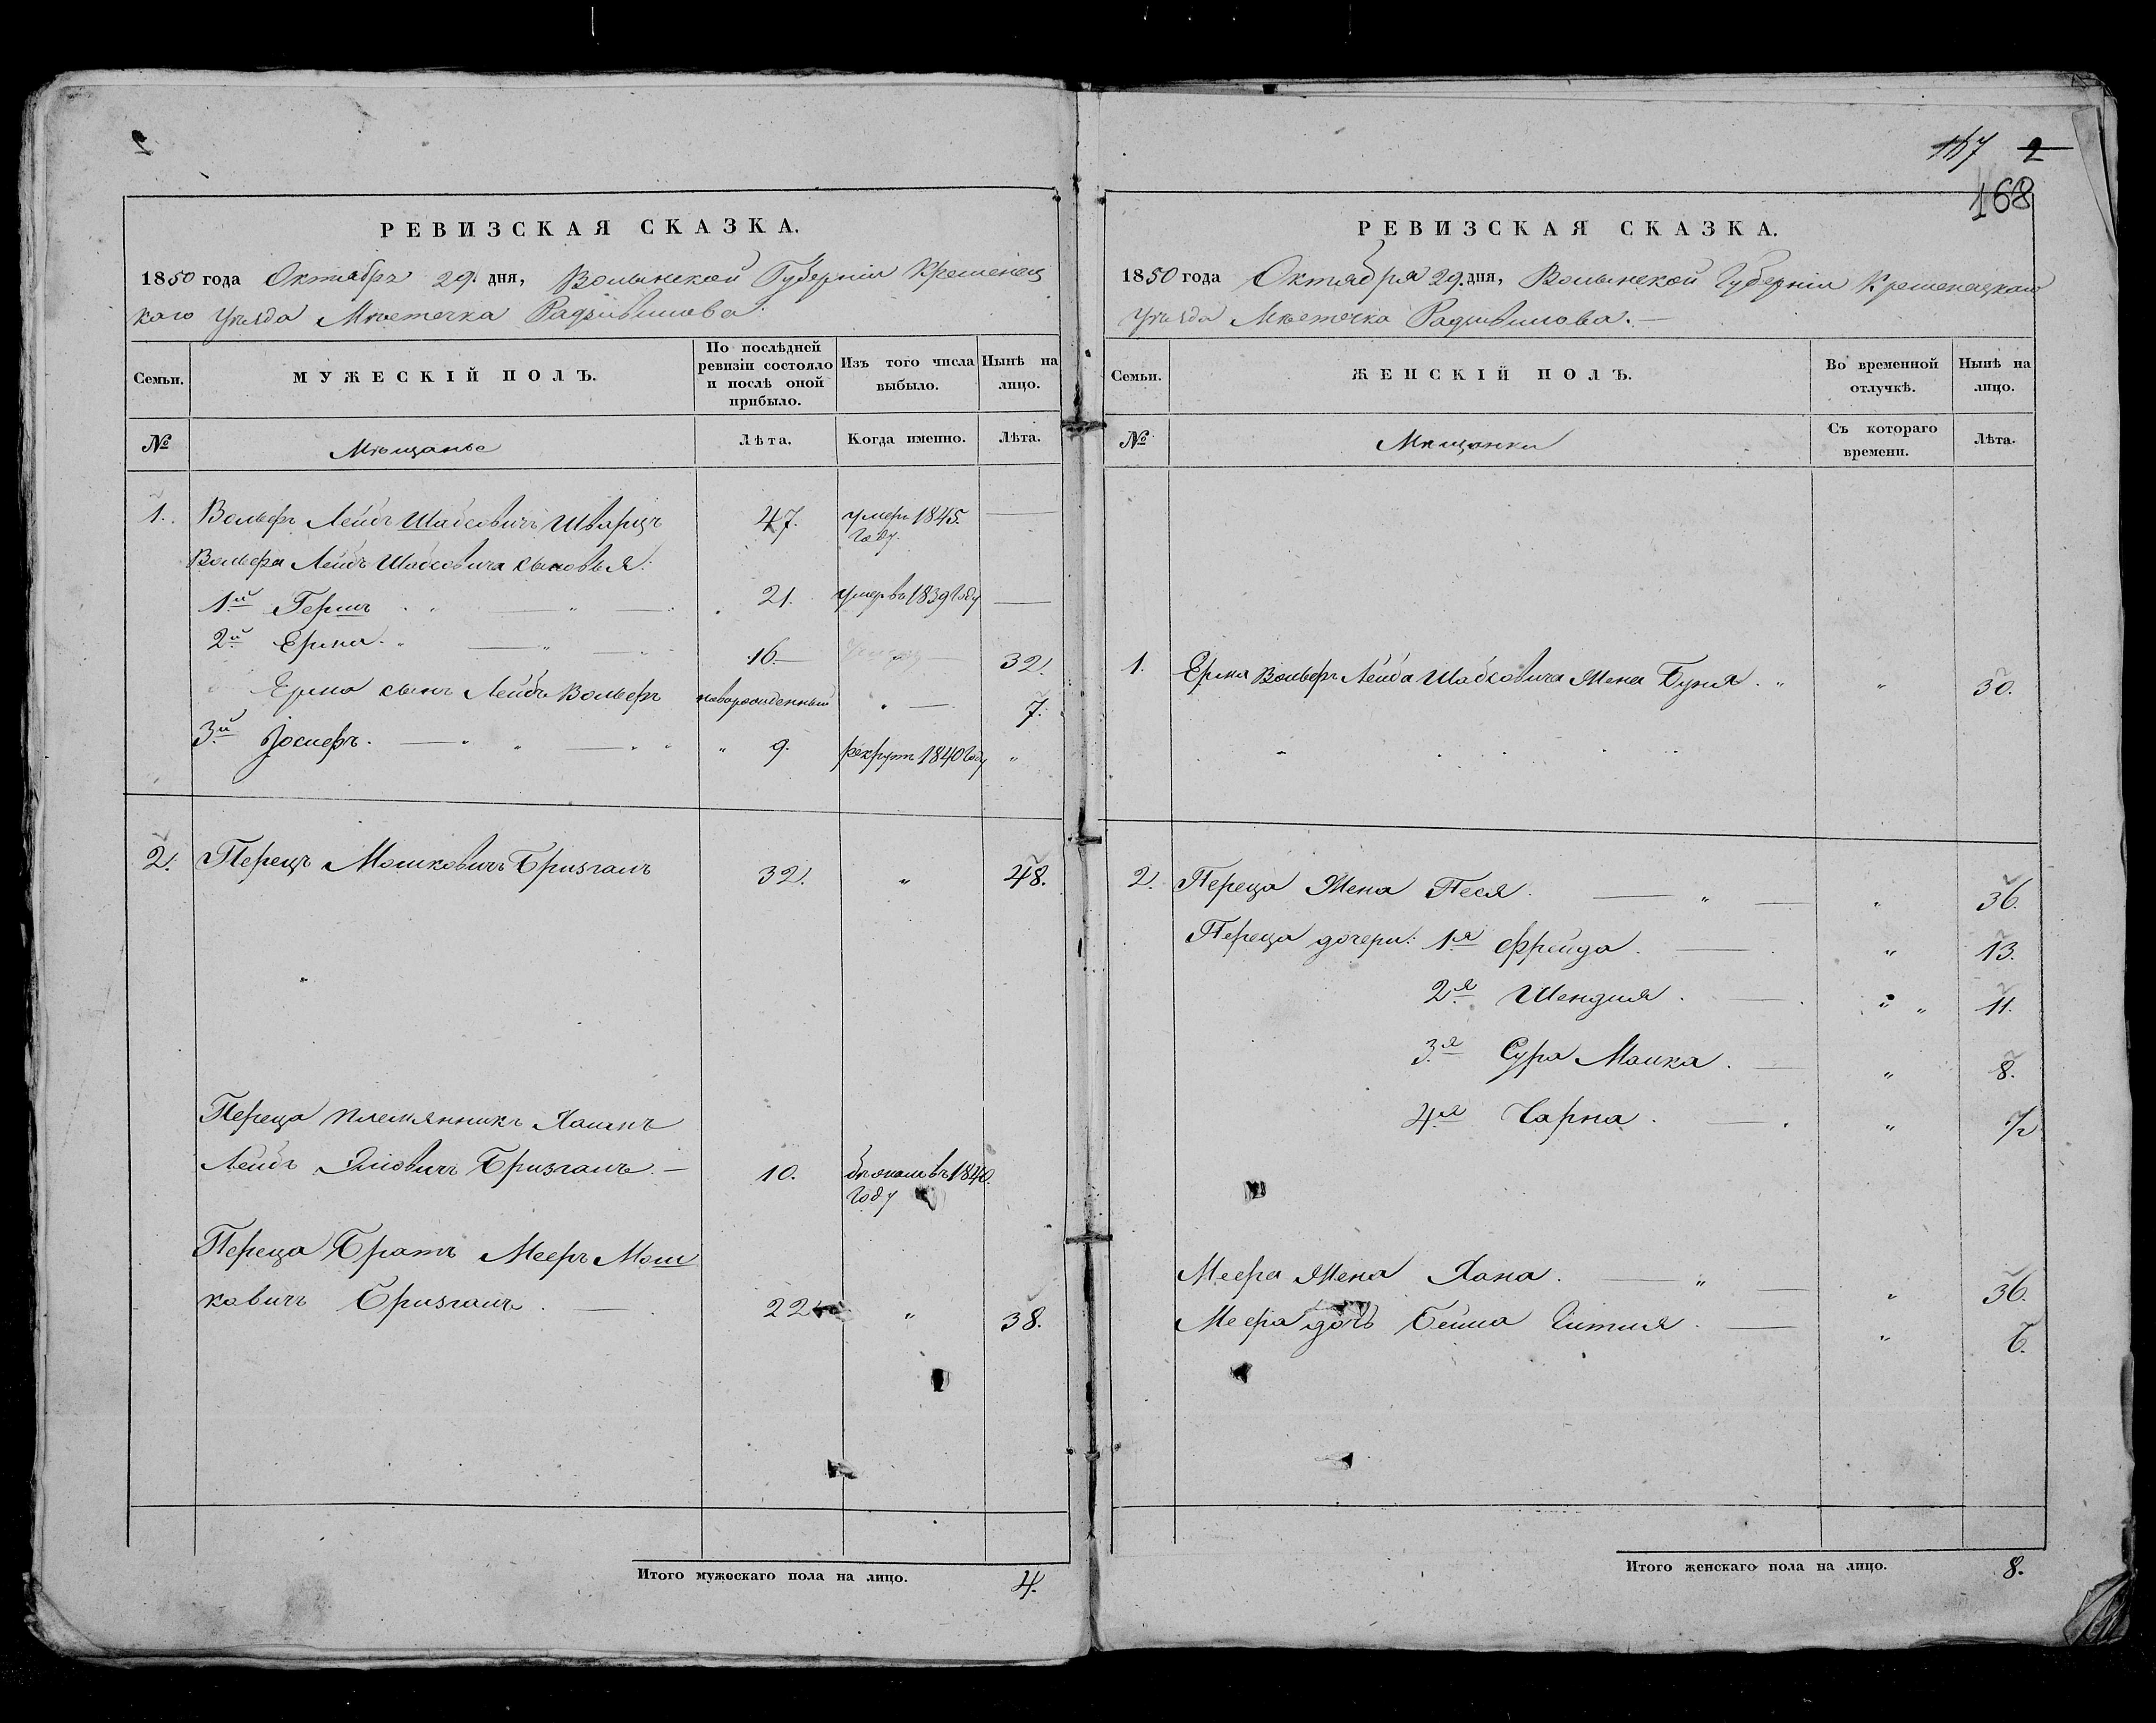 2
РЕВИЗСКАЯ СКАЗКА.
1850 года Октября 29. дня, Волынской Губерніи Кременец
каго Уѣзда Мѣстечка Радзивилова.
Семьи.
МУЖЕСКІЙ ПОЛЪ.
По послѣдней ревизіи состояло и послѣ оной прибыло.
Изъ того числа выбыло.
Нынѣ на лицо.
№ Мѣщане Лѣта. Когда именно. Лѣта.
1. Вольфъ Лейбъ Шабсовичъ Шварцъ 47. умеръ 1845. Году. —
Вольфа Лейбъ Шабсовича сыновья:
1й Гершъ 21. умер въ 1839 Году —
2й Ерма 16. — „ — 32.
Ерма сынъ Лейбъ Вольфъ новорожденный „ — 7.
3й Іосифъ. „ 9. рекрутъ 1840 Году „
2. Перецъ Мошковичъ Бризгалъ 32. „ 48.
Переца племянникъ Хаимъ
Лейбъ Бризгалъ. — 10. бѣжалъ въ 1840. Году
Переца Братъ Мееръ Мош
ковичъ Бризгалъ. — 22 „ 38.
Итого мужескаго пола на лицо. 4.
167 2
168
РЕВИЗСКАЯ СКАЗКА.
1850 года Октября 29. дня, Волынской Губерніи Кременецкаго
Уѣзда Мѣстечка Радзивилова. —
Семьи.
ЖЕНСКІЙ ПОЛЪ.
Во временной отлучкѣ.
Нынѣ на лицо.
№ Мѣщанки Съ котораго времени. Лѣта.
1. Ерма Вольфъ Лейба Шабсовича Жена Буня. „ „ 30.
2. Переца Жена Песя. — „ — „ 36.
Переца дочери: 1я Фрейда. — „ 13.
2я Шендля. — „ „ 11.
3я Сура Малка. — „ 8.
4я Чарна. — „ 1/2
Меера Жена Хана. — „ — „ 36.
Меера дочь Бейла Гитля. — „ 6.
Итого женскаго пола на лицо. 8.